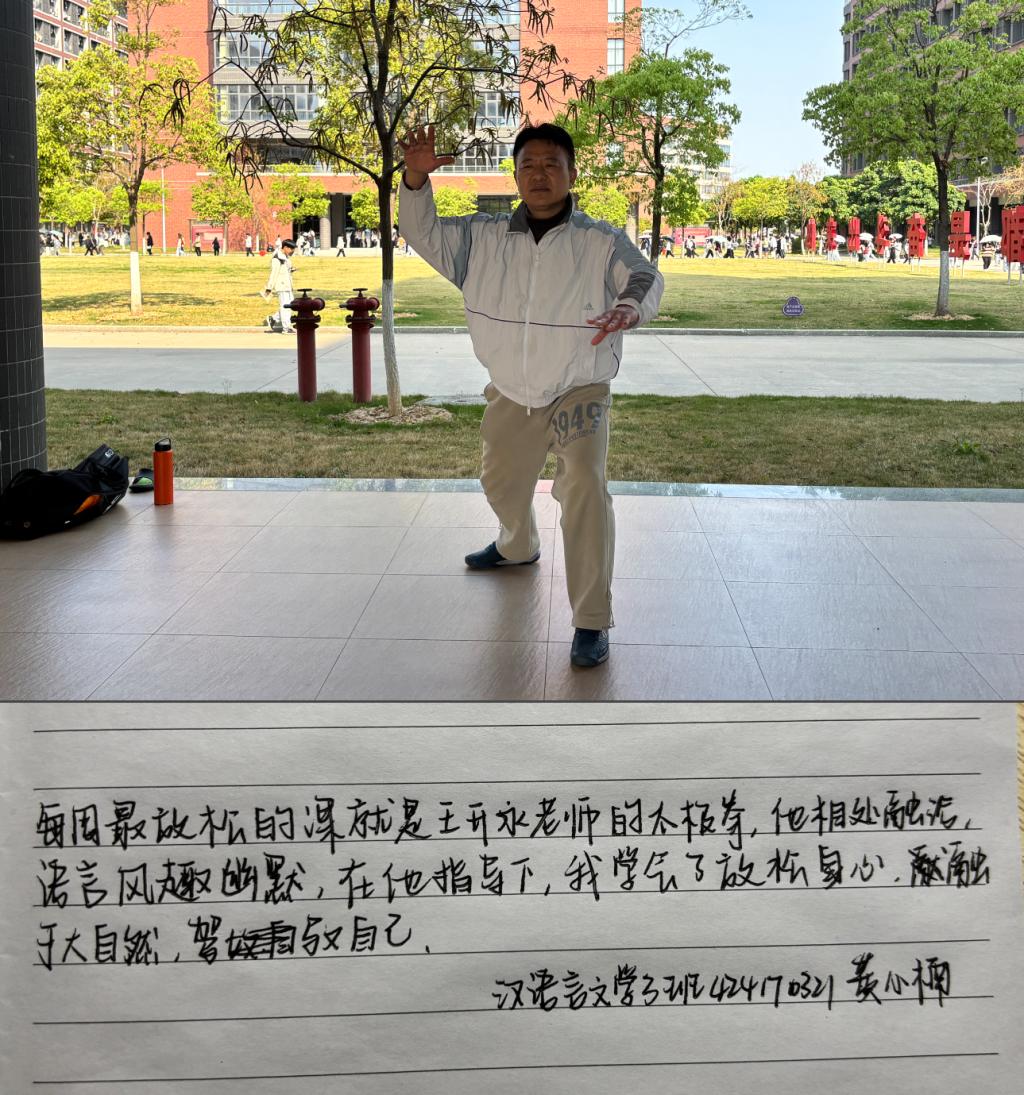 1949
每周最放松的课就是王开永老师的太极拳，他相处融洽，
语言风趣幽默，在他指导下，我学会了放松身心，融
于大自然，驾驭自己.
汉语言文学3班 424170321 黄小楠